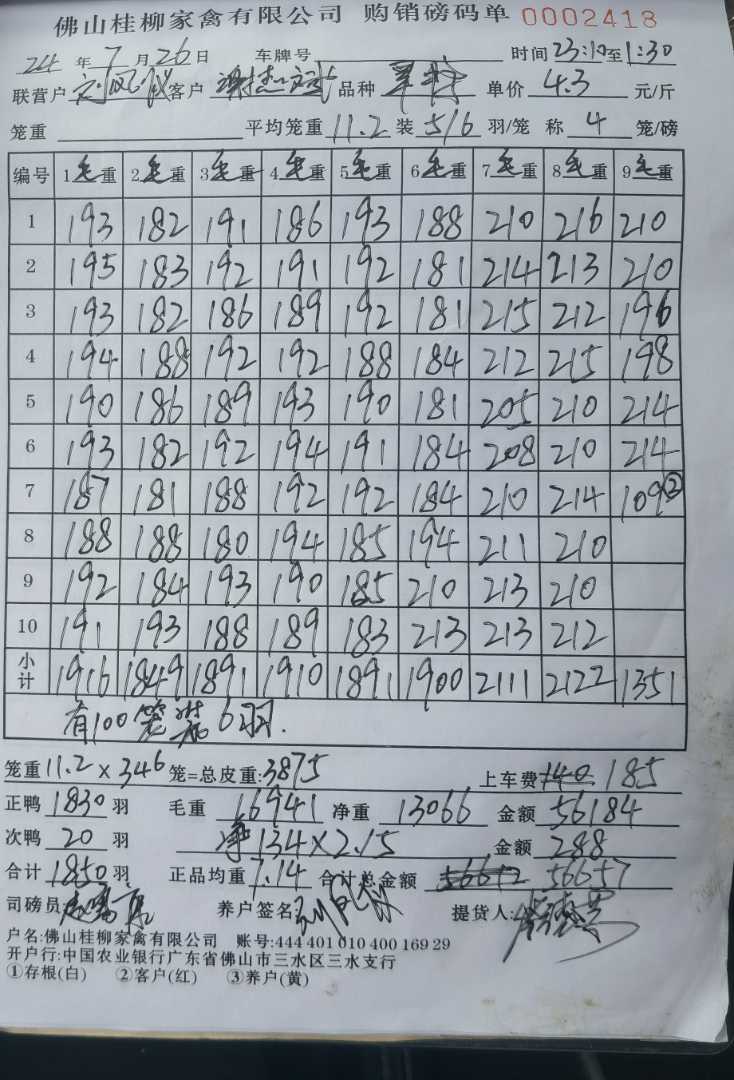 佛山桂柳家禽有限公司 购销磅码单 0002418
24年7月26日 车牌号 时间23:10至1:30
联营户 客户 品种 单价4.3元/斤
笼重 平均笼重11.2装5/6羽/笼 称4笼/磅
编号 1毛重 2毛重 3毛重 4毛重 5毛重 6毛重 7毛重 8毛重 9毛重
1 193 182 191 186 193 188 210 216 210
2 195 183 192 191 192 181 214 213 210
3 193 182 186 189 192 181 215 212 196
4 194 188 192 192 188 184 212 215 198
5 190 186 189 193 190 181 205 210 214
6 193 182 192 194 191 184 208 210 214
7 187 181 188 192 192 184 210 214 109②
8 188 188 180 194 185 194 211 210
9 192 184 193 190 185 210 213 210
10 191 193 188 189 183 213 213 212
小计 1916 1849 1891 1910 1891 1900 2111 2122 1351
有100笼装6羽.
笼重11.2×346笼=总皮重:3875 上车费 140 185
正鸭1830羽 毛重16941 净重13066 金额56184
次鸭20羽 净134×2.15 金额288
合计1850羽 正品均重7.14 合计总金额 56657
司磅员 养户签名 提货人:
户名:佛山桂柳家禽有限公司 账号:444 401 010 400 169 29
开户行:中国农业银行广东省佛山市三水区三水支行
①存根(白) ②客户(红) ③养户(黄)